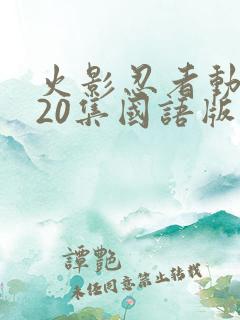 火影忍者動
20集國語版
譚艷
未經同意禁止轉載